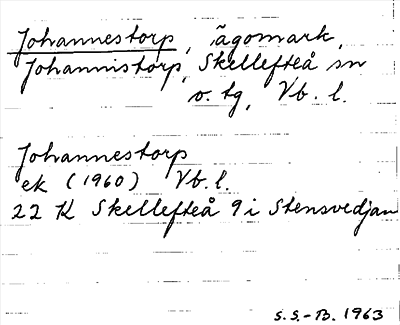 Johannestorp, ägomark,
Johannistorp, Skellefteå sn
o. tg, Vb. l.
Johannestorp
ek (1960) Vb. l.
22 K Skellefteå 9 i Stensvedjan
S.S.-B. 1963